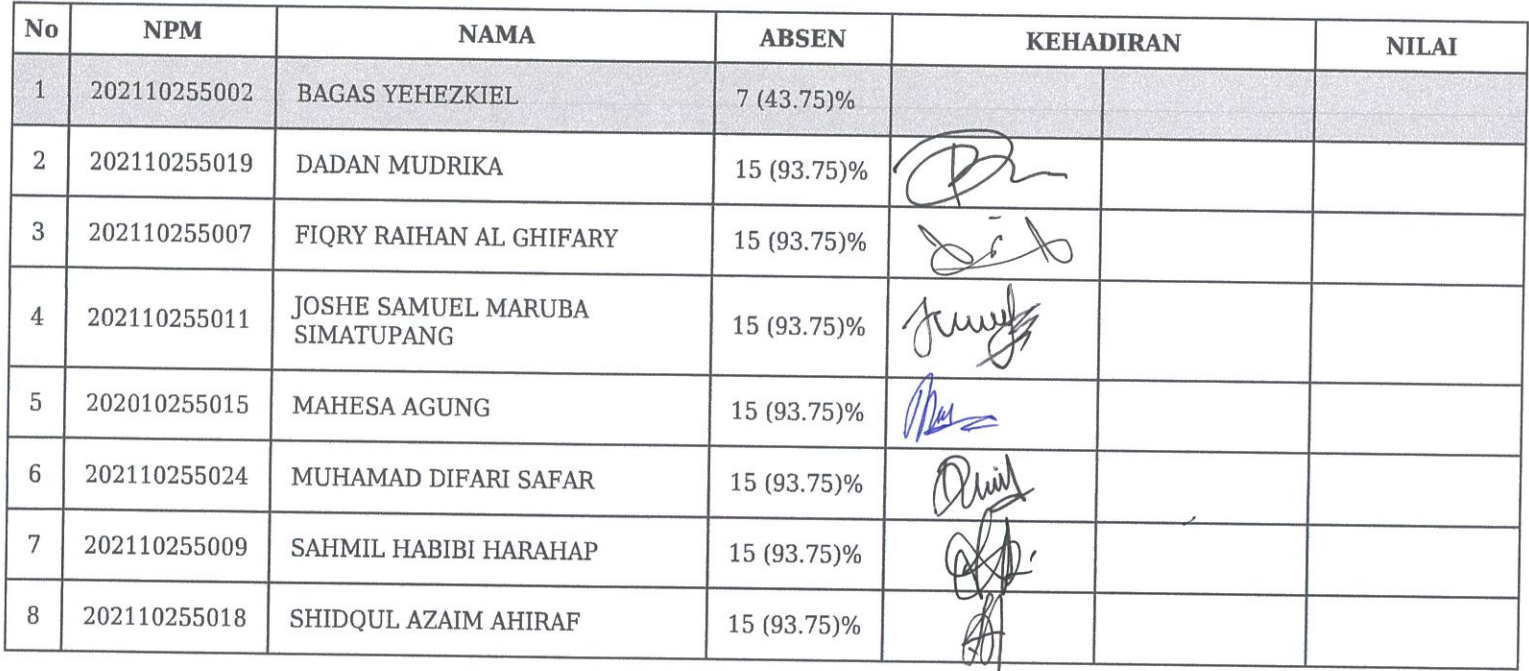 No NPM NAMA ABSEN KEHADIRAN NILAI
1 202110255002 BAGAS YEHEZKIEL 7 (43.75)%
2 202110255019 DADAN MUDRIKA 15 (93.75)%
3 202110255007 FIQRY RAIHAN AL GHIFARY 15 (93.75)%
4 202110255011 JOSHE SAMUEL MARUBA SIMATUPANG 15 (93.75)%
5 202010255015 MAHESA AGUNG 15 (93.75)%
6 202110255024 MUHAMAD DIFARI SAFAR 15 (93.75)%
7 202110255009 SAHMIL HABIBI HARAHAP 15 (93.75)%
8 202110255018 SHIDQUL AZAIM AHIRAF 15 (93.75)%